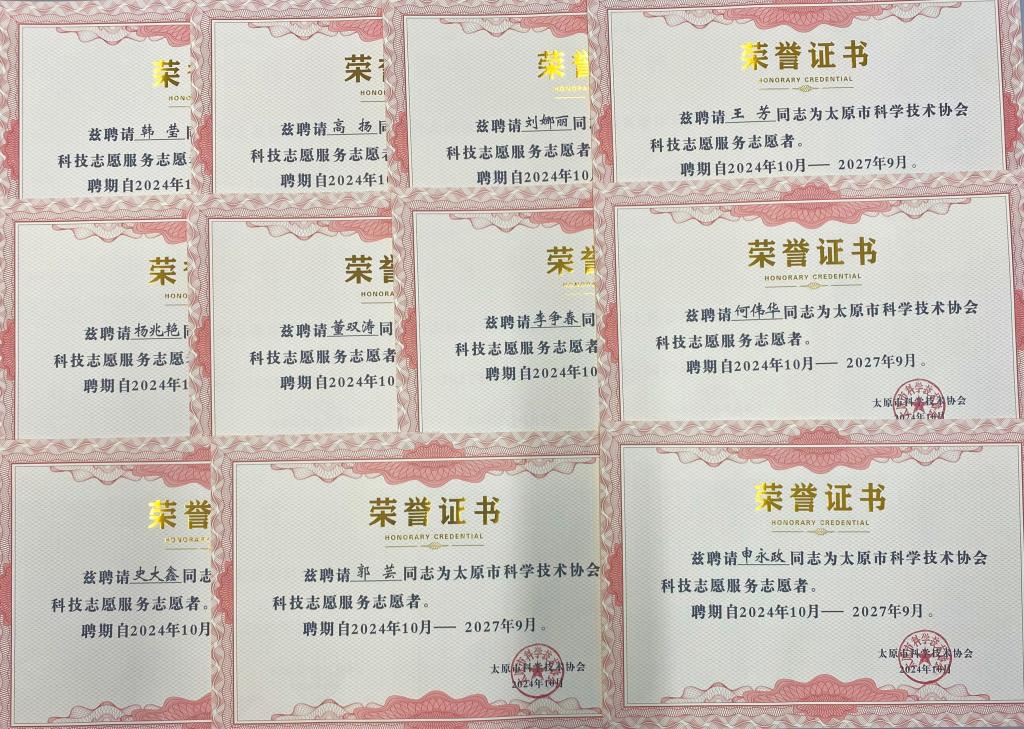 荣
HONO
兹聘请韩 莹同
科技志愿服务志愿
聘期自2024年1
荣
HONO
兹聘请高 扬同
科技志愿服务志愿者
聘期自2024年10
荣誉
HONORA
兹聘请刘娜丽同
科技志愿服务志愿者
聘期自2024年10
荣誉证书
HONORARY CREDENTIAL
兹聘请王 芳同志为太原市科学技术协会
科技志愿服务志愿者。
聘期自2024年10月— 2027年9月。
荣
HONO
兹聘请杨兆艳同
科技志愿服务志愿
聘期自2024年1
荣
HONORA
兹聘请董双涛同
科技志愿服务志愿者
聘期自2024年10
荣誉
HONORA
兹聘请李争春同
科技志愿服务志愿者
聘期自2024年10
荣誉证书
HONORARY CREDENTIAL
兹聘请何伟华同志为太原市科学技术协会
科技志愿服务志愿者。
聘期自2024年10月— 2027年9月。
太原市科学技术协会
2024年10月
荣誉
HONORAR
兹聘请史大鑫同志
科技志愿服务志愿者。
聘期自2024年10月
荣誉证书
HONORARY CREDENTIAL
兹聘请郭 芸同志为太原市科学技术协会
科技志愿服务志愿者。
聘期自2024年10月— 2027年9月。
太原市科学技术协会
2024年10月
荣誉证书
HONORARY CREDENTIAL
兹聘请申永政同志为太原市科学技术协会
科技志愿服务志愿者。
聘期自2024年10月— 2027年9月。
太原市科学技术协会
2024年10月